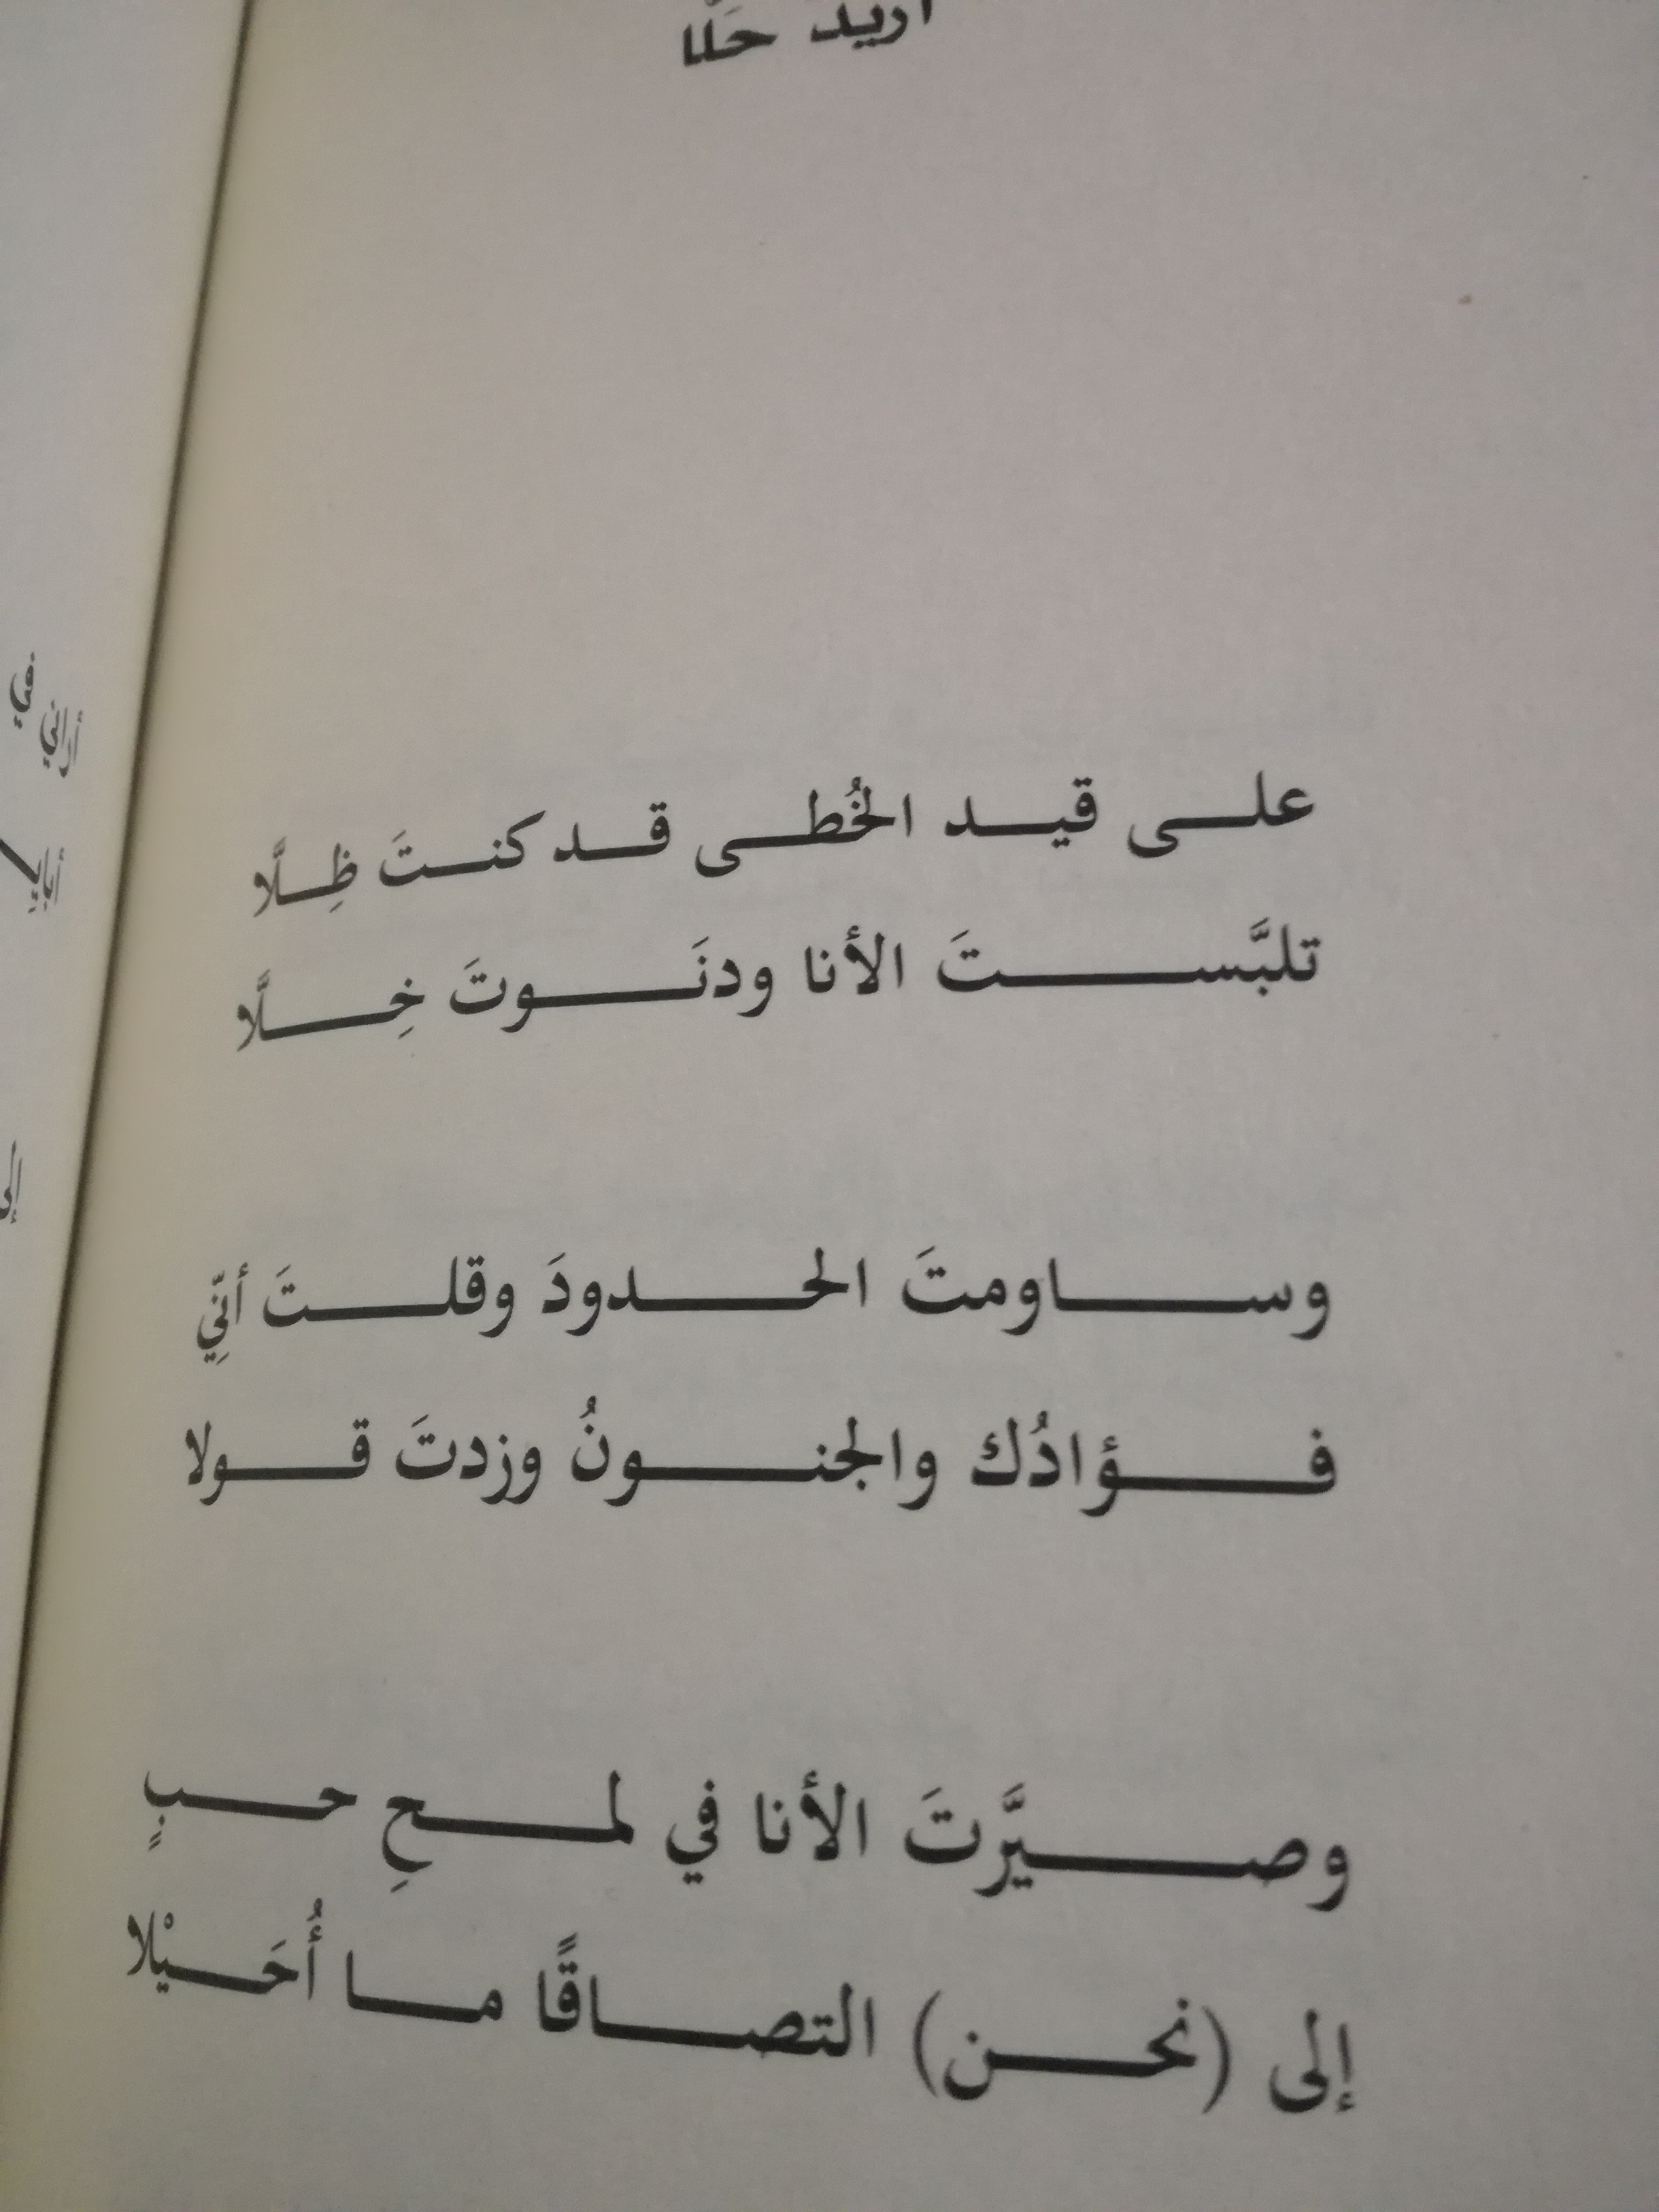 أريد حَلَّا
على قيد الخُطى قد كنتَ ظِلَّا
تلبَّستَ الأنا ودنَوتَ خِلَّا
وساومتَ الحدودَ وقلتَ أنّي
فؤادُك والجنونُ وزدتَ قولا
وصيَّرتَ الأنا في لمحِ حبٍ
إلى (نحن) التصاقًا ما أُحَيْلا